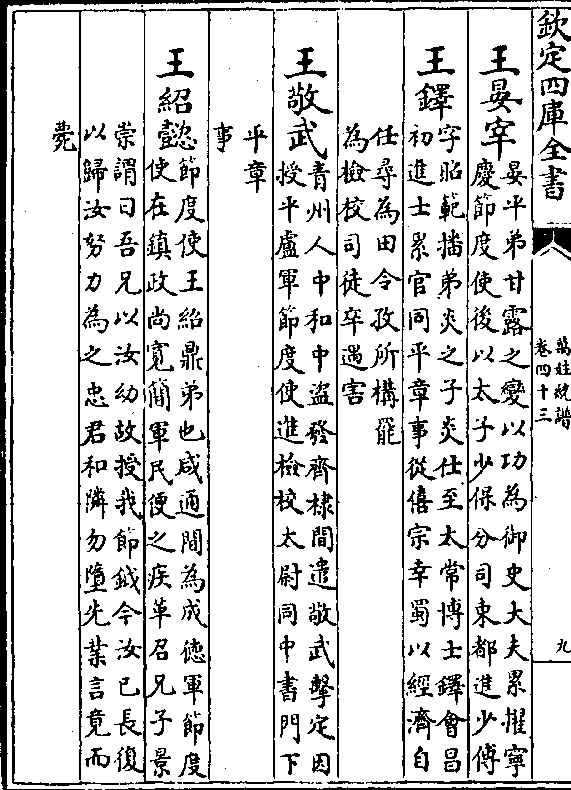 欽定四庫全書
萬姓統譜
卷四十三
九
王晏宰
晏平弟甘露之變以功為御史大夫累擢寧
慶節度使後以太子少保分司東都進少傅
王鐸
字昭範播弟炎之子炎仕至太常博士鐸會昌
初進士累官同平章事從僖宗幸蜀以經濟自
任尋為田令孜所構罷
為檢校司徒卒遇害
王敬武
青州人中和中盜發齊棣間遣敬武擊定因
授平盧軍節度使進檢校太尉同中書門下
平章
事
王紹懿
節度使王紹鼎弟也咸通間為成德軍節度
使在鎮政尚寬簡軍民便之疾革召兄子景
崇謂曰吾兄以汝幼故授我節鉞今汝已長復
以歸汝努力為之忠君和隣勿墮先業言竟而
薨